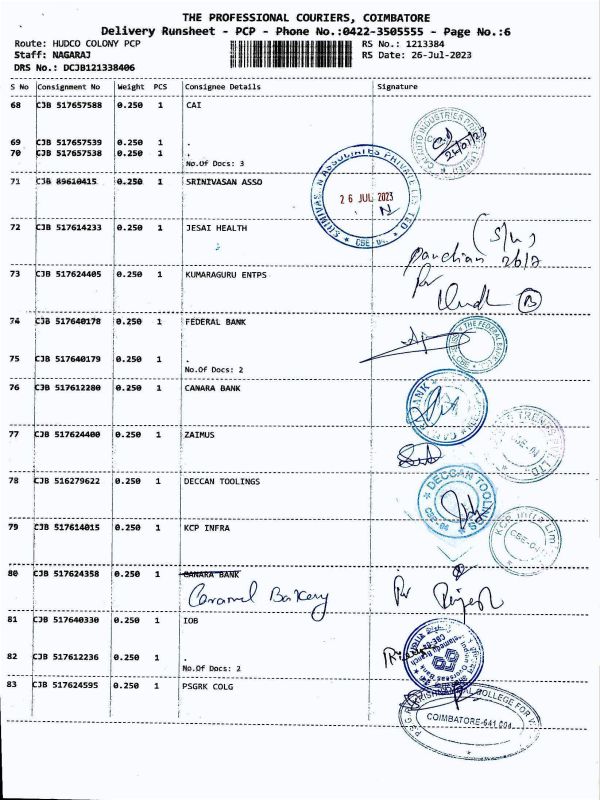 THE PROFESSIONAL COURIERS, COIMBATORE
Delivery Runsheet - PCP - Phone No.:0422-3505555 - Page No.:6
Route: HUDCO COLONY PCP RS No.: 1213384
Staff: NAGARAJ RS Date: 26-Jul-2023
DRS No.: DCJB121338406
S No Consignment No Weight PCS Consignee Details Signature
68 CJB 517657588 0.250 1 CAI
69 CJB 517657539 0.250 1 .
70 CJB 517657538 0.250 1 .
No.Of Docs: 3
71 CJB 89610415 0.250 1 SRINIVASAN ASSO
26 JUL 2023
72 CJB 517614233 0.250 1 JESAI HEALTH
Pandian 26/7
73 CJB 517624405 0.250 1 KUMARAGURU ENTPS
74 CJB 517640178 0.250 1 FEDERAL BANK
THE FEDERAL BANK
75 CJB 517640179 0.250 1 .
No.Of Docs: 2
76 CJB 517612280 0.250 1 CANARA BANK
77 CJB 517624400 0.250 1 ZAIMUS
78 CJB 516279622 0.250 1 DECCAN TOOLINGS
DECCAN TOOLINGS
79 CJB 517614015 0.250 1 KCP INFRA
KCP Infra Limi
80 CJB 517624358 0.250 1 CANARA BANK
Caramel Bakery
81 CJB 517640330 0.250 1 IOB
82 CJB 517612236 0.250 1 .
No.Of Docs: 2
83 CJB 517624595 0.250 1 PSGRK COLG
COIMBATORE-641 004